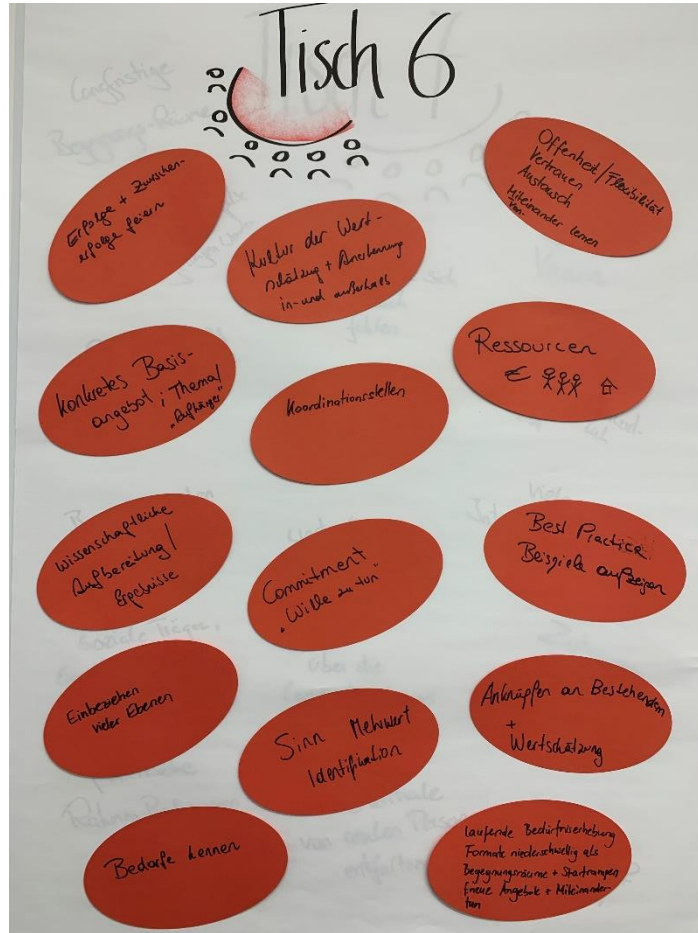 Tisch 6
Erfolge + Zwischen-
erfolge feiern
Kultur der Wert-
schätzug + Anerkennung
in- und außerhalb
Offenheit/Flexibilität
Vertrauen
Austausch
Miteinander lernen
Von-
Konkretes Basis-
angebot; Thema/
"Aufhänger"
Koordinationsstellen
Ressourcen
€
Wissenschaftliche
Aufbereitung/
Ergebnisse
Commitment
"Wille zu tun"
Best Practice
Beispiele aufzeigen
Einbeziehen
vieler Ebenen
Sinn Mehrwert
Identifikation
Anknüpfen an Bestehendem
+
Wertschätzung
Bedarfe kennen
laufende Bedürfniserhebung
Formate niederschwellig als
Begegnungsräume + Startrampen
f. neue Angebote + Miteinander-
tun